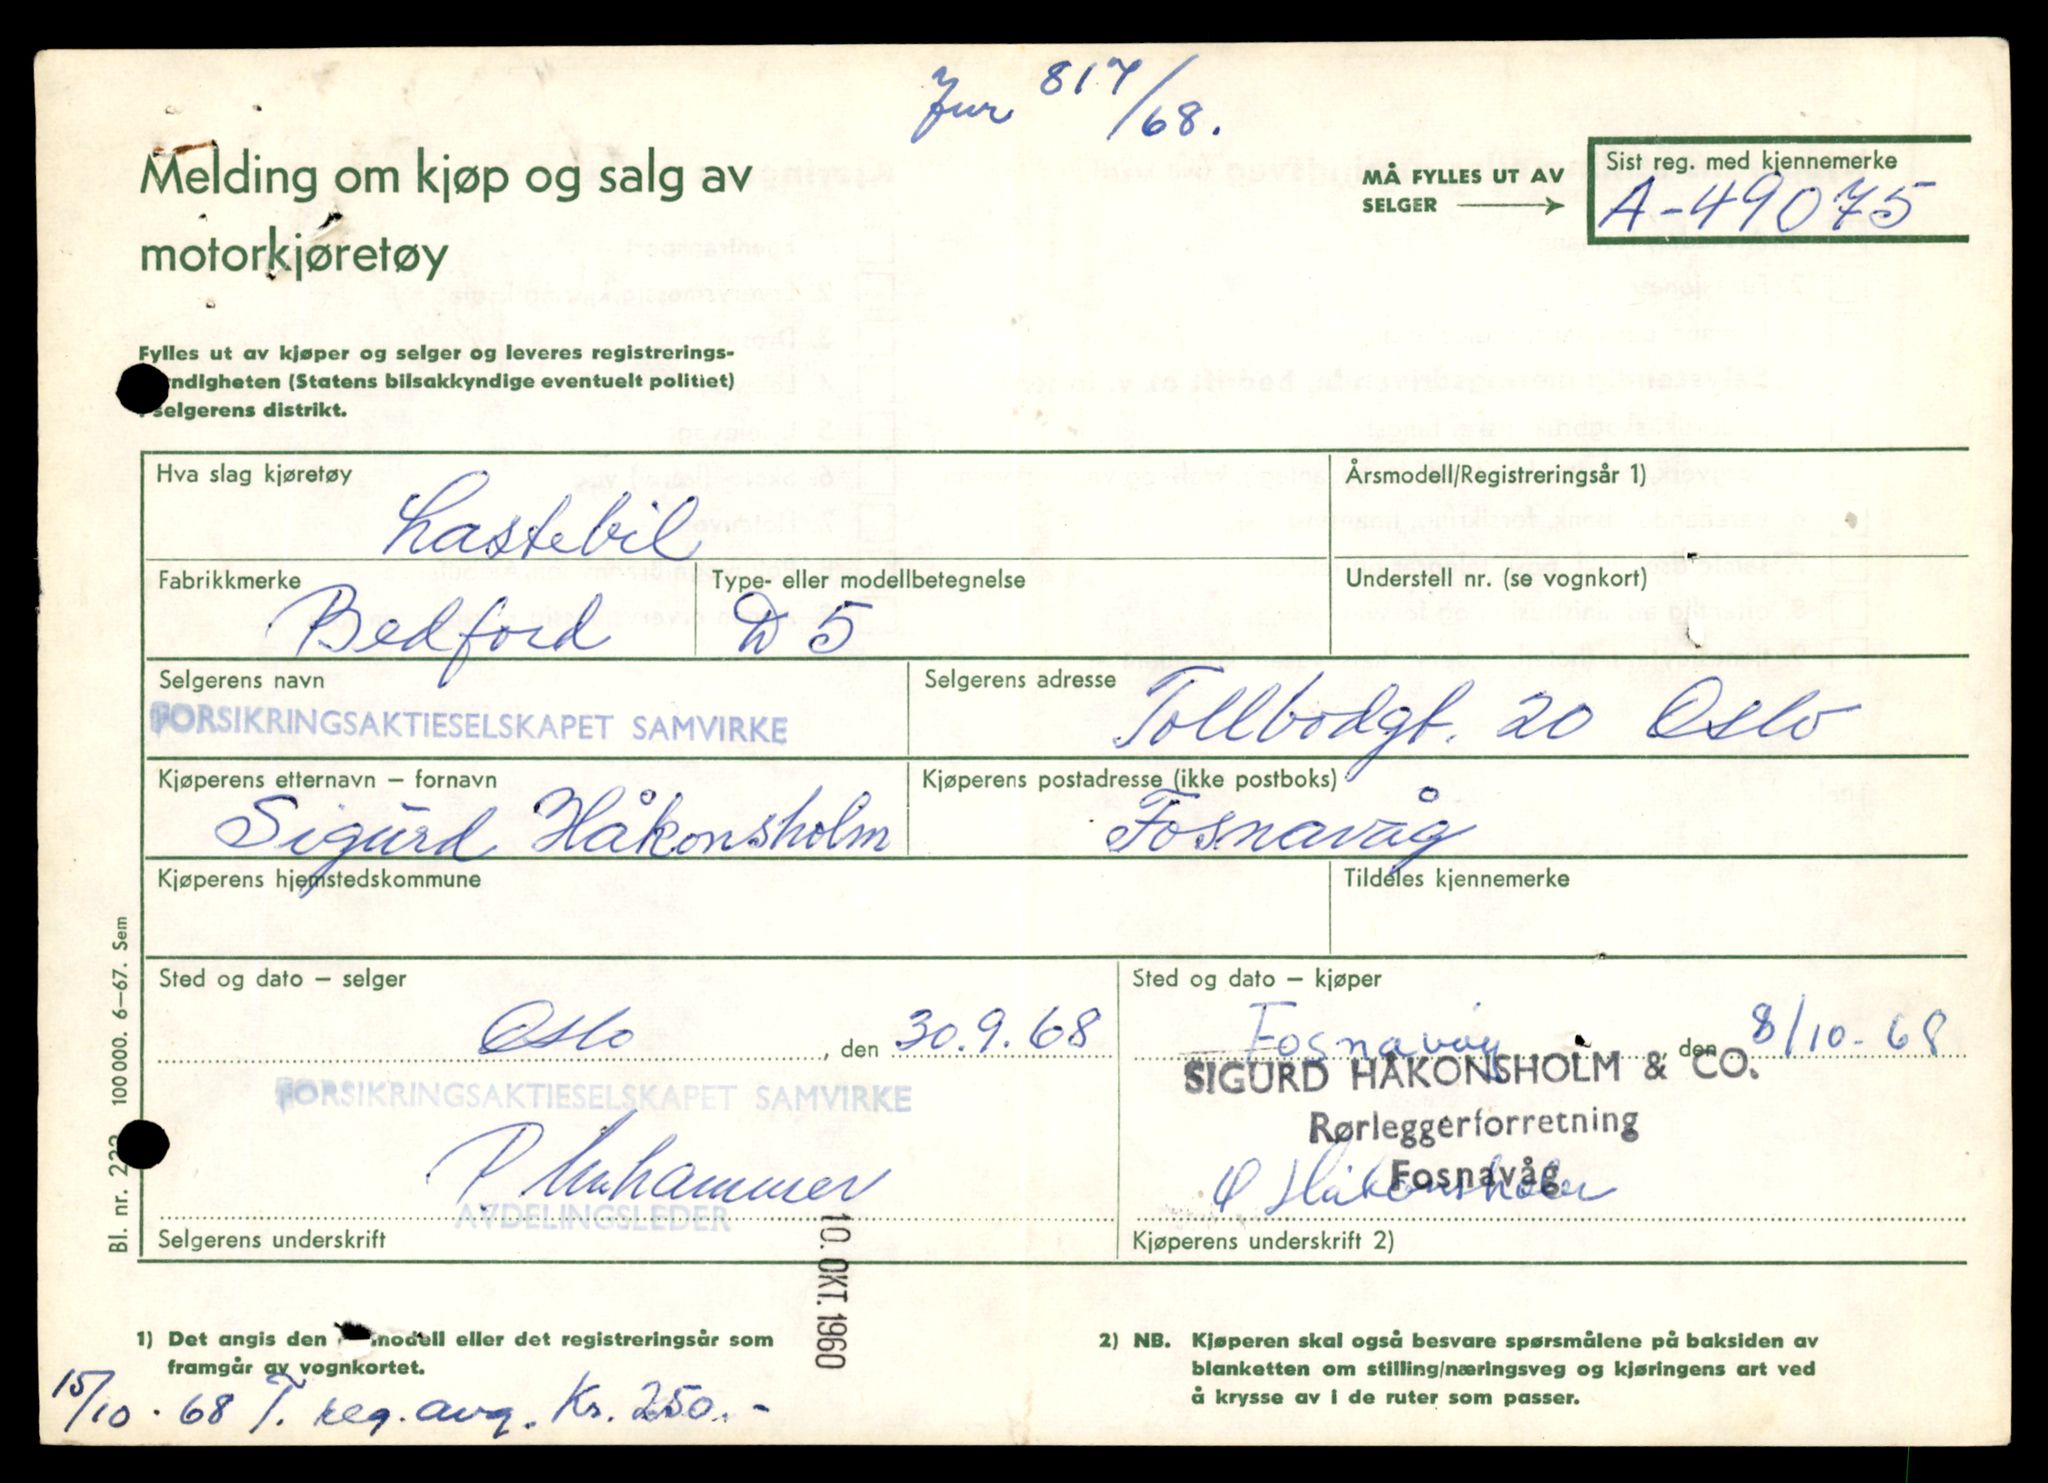 Jur 817/68.
Melding om kjøp og salg av
motorkjøretøy
MÅ FYLLES UT AV
SELGER
Sist reg. med kjennemerke
A-49075
Fylles ut av kjøper og selger og leveres registrerings-
ndigheten (Statens bilsakkyndige eventuelt politiet)
selgerens distrikt.
Hva slag kjøretøy
Årsmodell/Registreringsår 1)
Lastebil
Fabrikkmerke
Type- eller modellbetegnelse
Understell nr. (se vognkort)
Bedford
D5
Selgerens navn
Selgerens adresse
FORSIKRINGSAKTIESELSKAPET SAMVIRKE
Tollbodgt. 20 Oslo
Kjøperens etternavn – fornavn
Kjøperens postadresse (ikke postboks)
Sigurd Håkonsholm
Fosnavåg
Kjøperens hjemstedskommune
Tildeles kjennemerke
Sted og dato – selger
Sted og dato – kjøper
Oslo, den 30.9.68
Fosnavåg, den 8/10-68
FORSIKRINGSAKTIESELSKAPET SAMVIRKE
SIGURD HÅKONSHOLM & CO.
Rørleggerforretning
Fosnavåg
Håkonsholm
AVDELINGSLEDER
Selgerens underskrift
Kjøperens underskrift 2)
10. OKT. 1960
1) Det angis den modell eller det registreringsår som
framgår av vognkortet.
2) NB. Kjøperen skal også besvare spørsmålene på baksiden av
blanketten om stilling/næringsveg og kjøringens art ved
å krysse av i de ruter som passer.
15/10.68 T. reg. avg. Kr. 250.-
Bl. nr. 223 100 000. 6–67. Sem